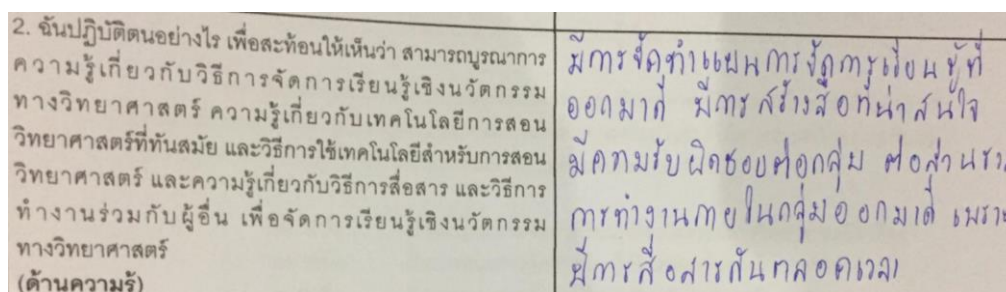 2. ฉันปฏิบัติตนอย่างไร เพื่อสะท้อนให้เห็นว่า สามารถบูรณาการ
ความรู้เกี่ยวกับวิธีการจัดการเรียนรู้เชิงนวัตกรรม
ทางวิทยาศาสตร์ ความรู้เกี่ยวกับเทคโนโลยีการสอน
วิทยาศาสตร์ที่ทันสมัย และวิธีการใช้เทคโนโลยีสำหรับการสอน
วิทยาศาสตร์ และความรู้เกี่ยวกับวิธีการสื่อสาร และวิธีการ
ทำงานร่วมกับผู้อื่น เพื่อจัดการเรียนรู้เชิงนวัตกรรม
ทางวิทยาศาสตร์
(ด้านความรู้)
มีการจัดทำแผนการจัดการเรียนรู้ที่
ออกมาดี มีการสร้างสื่อที่น่าสนใจ
มีความรับผิดชอบต่อกลุ่ม ต่อส่วนรวม
การทำงานภายในกลุ่มออกมาดี เพราะ
มีการสื่อสารกันตลอดเวลา